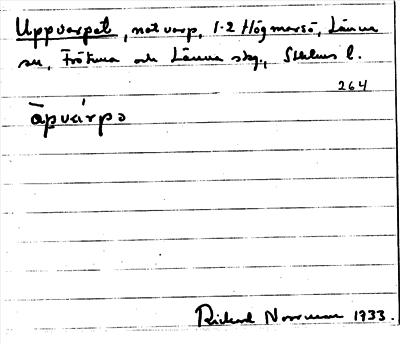 Uppvarpet, notvarp, 1-2 Högmarsö, Länna
sn, Frötuna och Länna skg., Sthlms l.
264
āpvárpə
Rickard Norrman 1933.